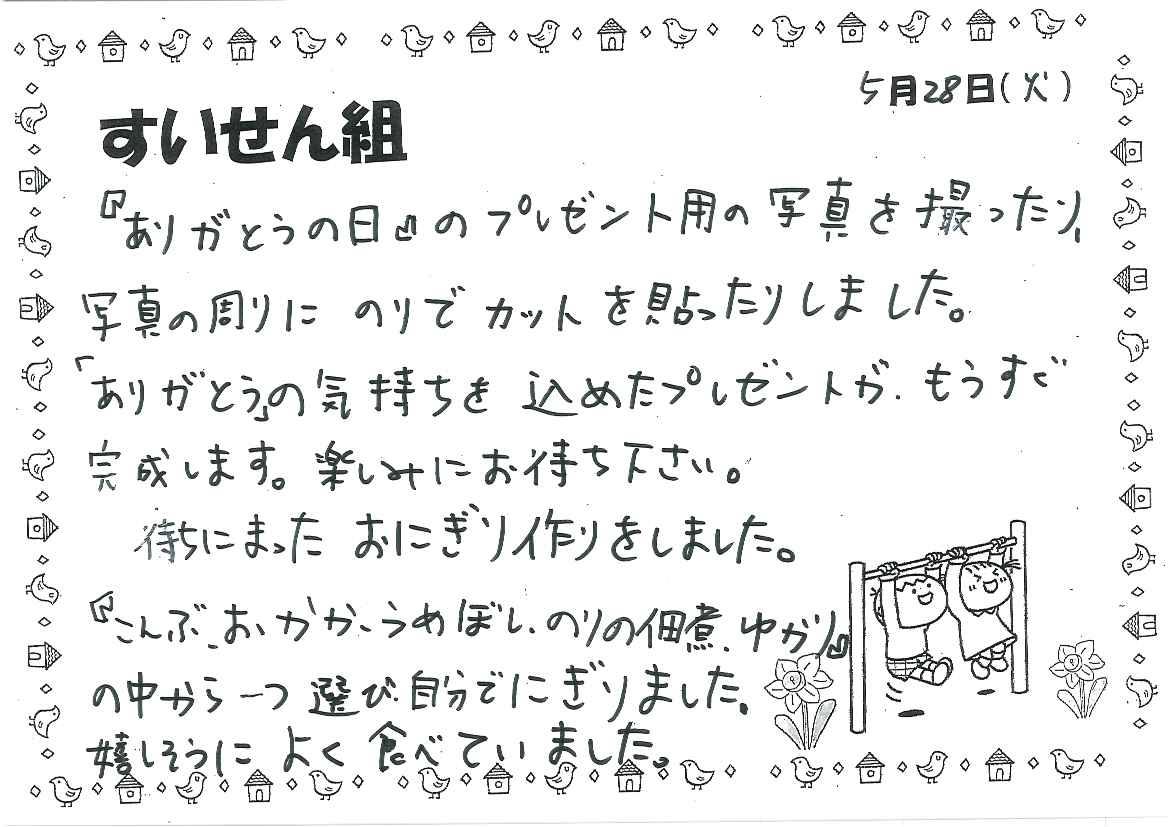 5月28日(火)
すいせん組
『ありがとうの日』のプレゼント用の写真を撮ったり、
写真の周りにのりでカットを貼ったりしました。
「ありがとう」の気持ちを込めたプレゼントが、もうすぐ
完成します。楽しみにお待ち下さい。
待ちにまったおにぎり作りをしました。
『こんぶ、おかか、うめぼし、のりの佃煮、ゆかり』
の中から一つ選び、自分でにぎりました。
嬉しそうによく食べていました。